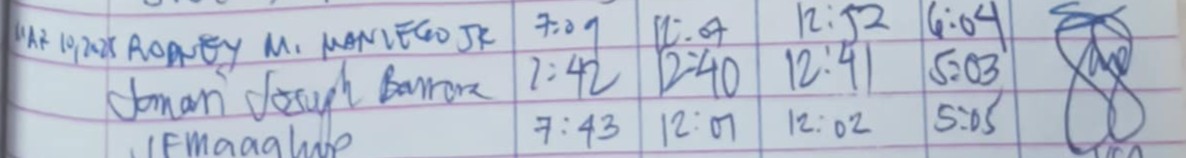 MAR 10, 2025 RODNEY M. MANLEGO JR 7:09 12:07 12:52 6:04
Joman Joseph Barrora 7:42 12:40 12:41 5:03
JFmaaghop 7:43 12:01 12:02 5:05